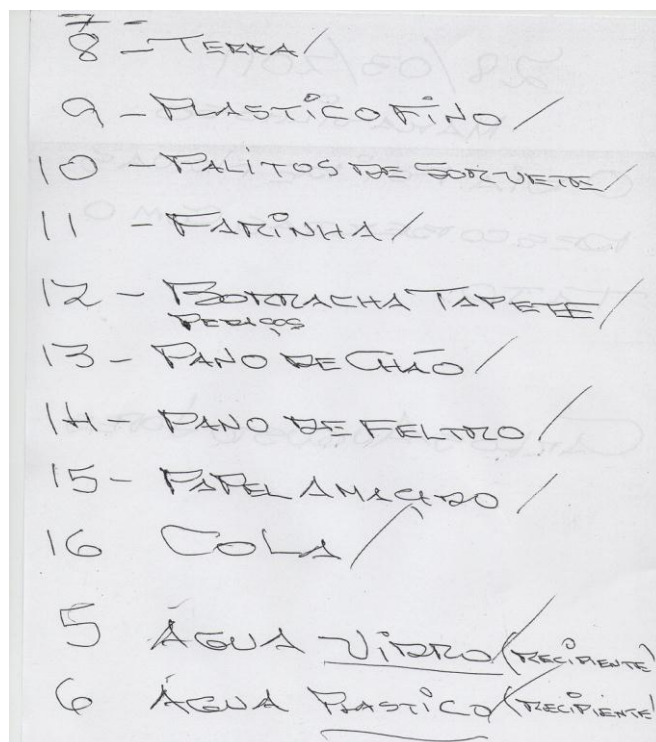 7-
8 - TERRA /
9 - PLASTICO FINO /
10 - PALITOS DE SORVETE /
11 - FARINHA /
12 - BORRACHA TAPETE /
PEDAÇOS
13 - PANO DE CHÃO /
14 - PANO DE FELTRO /
15 - PAPEL AMAÇADO /
16 COLA /
5 ÁGUA VIDRO (RECIPIENTE)
6 ÁGUA PLASTICO (RECIPIENTE)